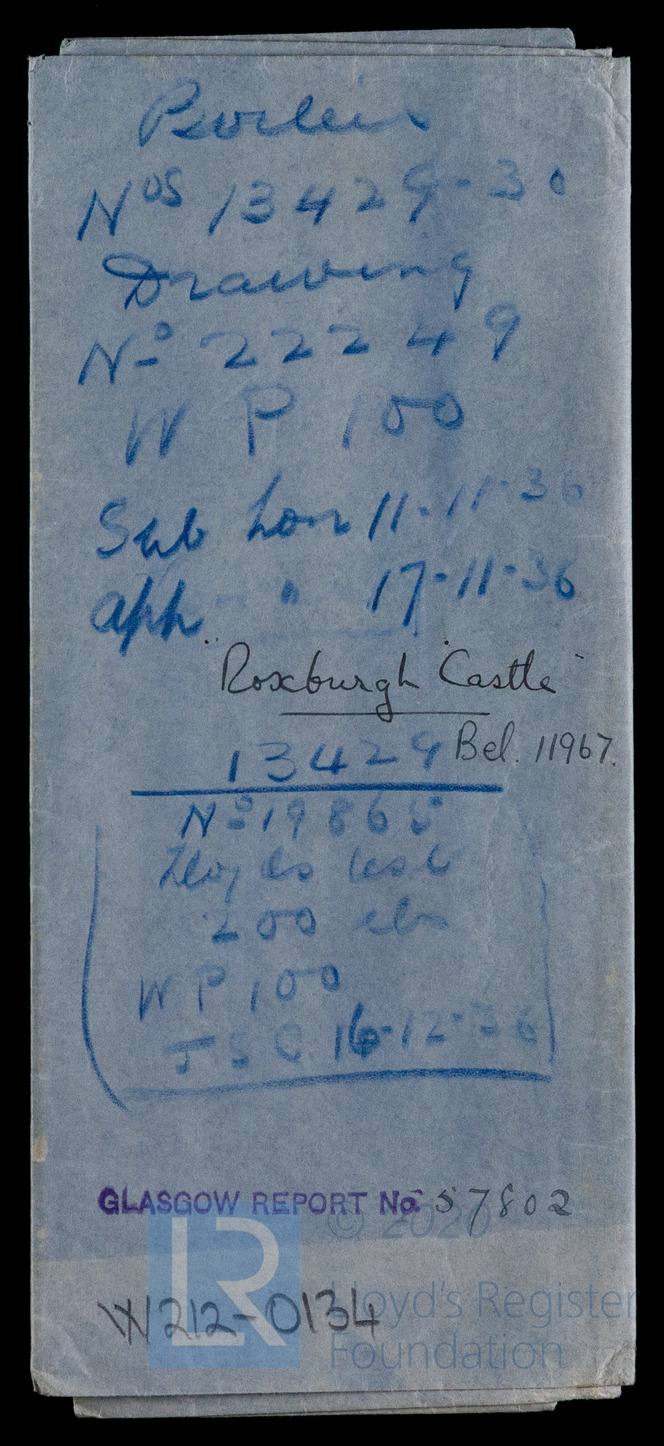 Boiler
Nos 13429-30
Drawing
No 22249
W P 100
Sub Lon 11-11-36
App " 17-11-36
"Roxburgh Castle"
13429 Bel. 11967.
No 19865
Lloyds test
200 lbs
W P 100
J S C 16-12-36
GLASGOW REPORT No. 57802
© 2020
LR
Lloyd's Register
Foundation
W212-0134